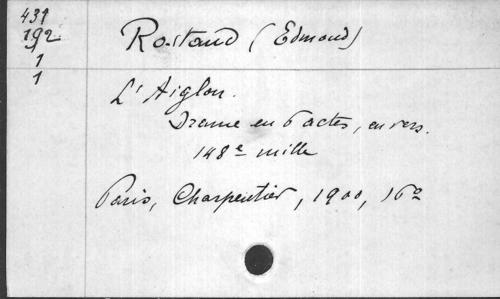 431
192
1
1
Rostand (Edmond)
L'Aiglon.
Drame en 6 actes, en vers.
148e mille
Paris, Charpentier, 1900, 16o